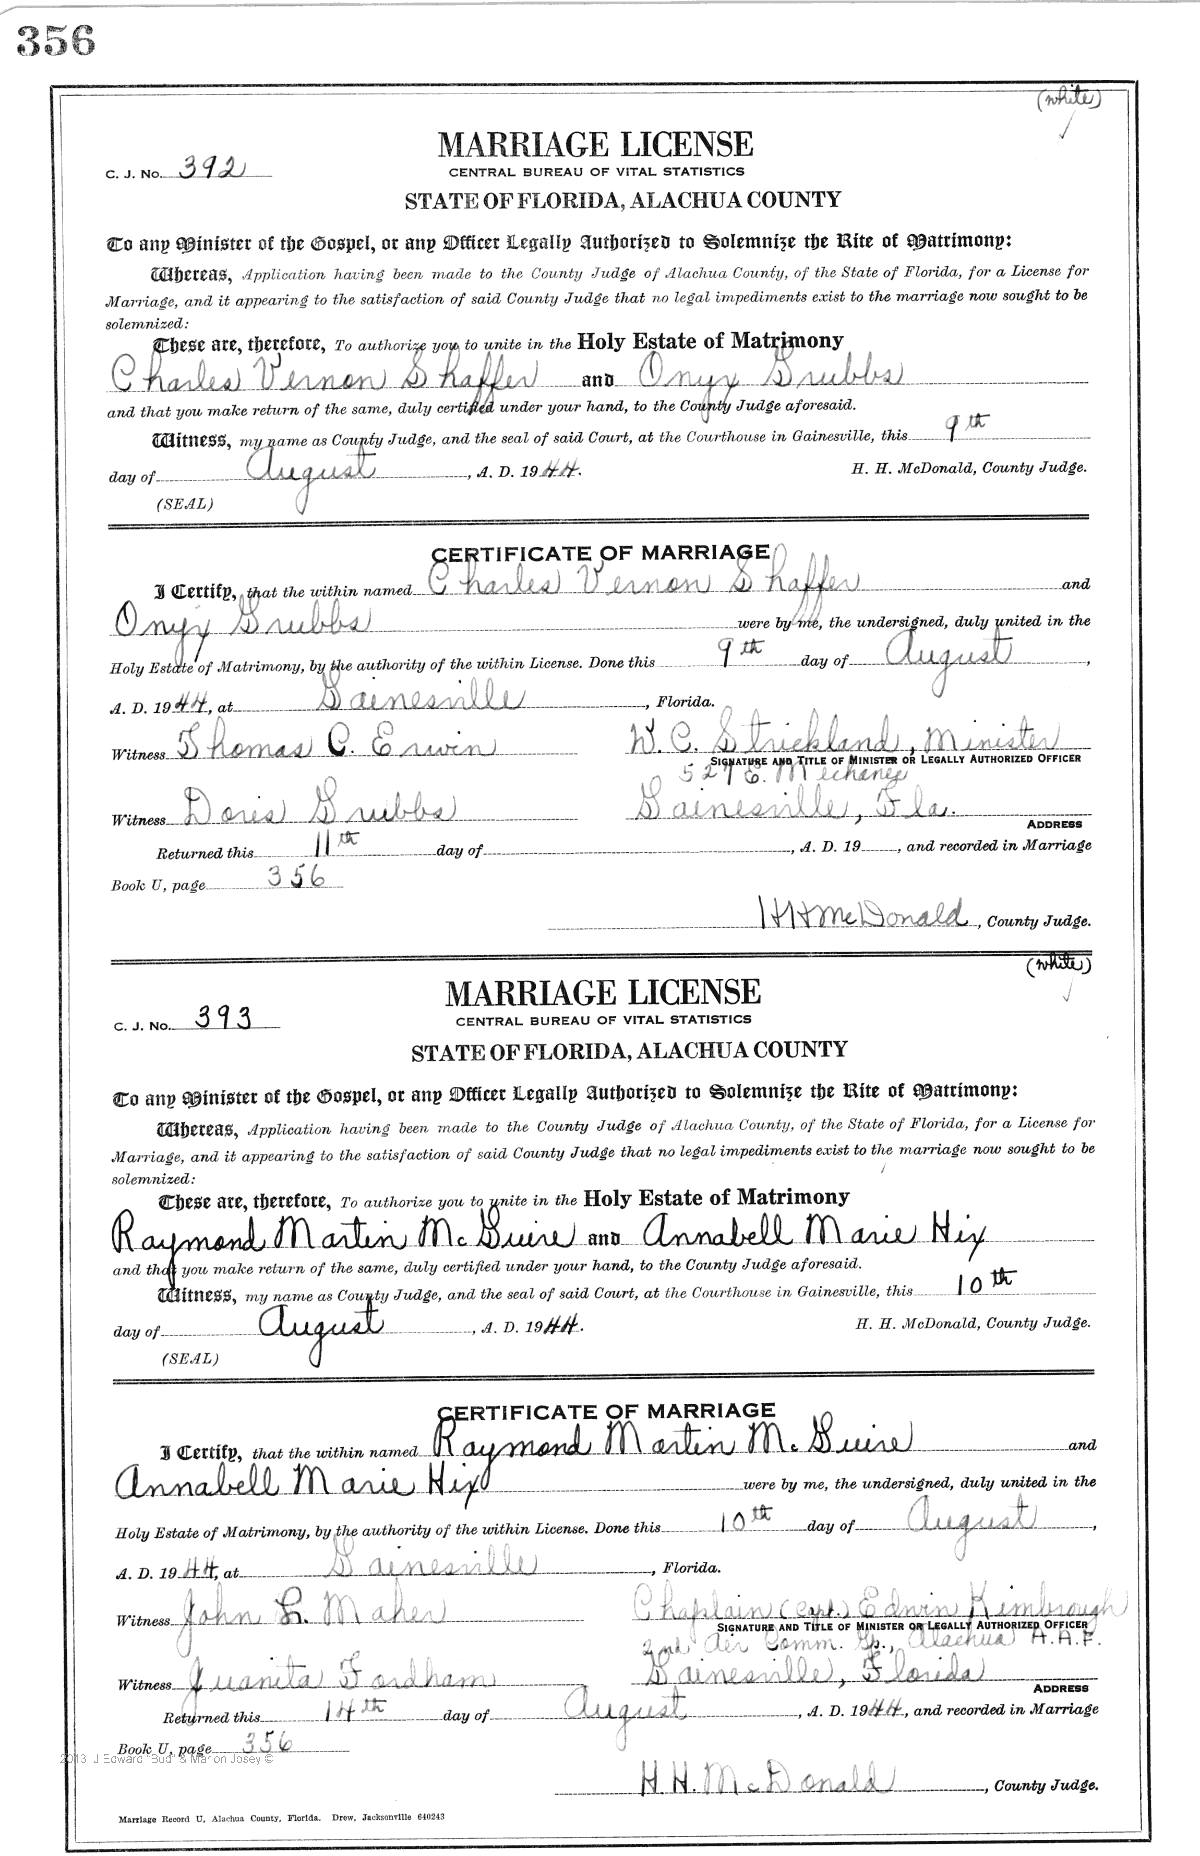 356
(white)
MARRIAGE LICENSE
C. J. No. 392
CENTRAL BUREAU OF VITAL STATISTICS
STATE OF FLORIDA, ALACHUA COUNTY
To any Minister of the Gospel, or any Officer Legally Authorized to Solemnize the Rite of Matrimony:
Whereas, Application having been made to the County Judge of Alachua County, of the State of Florida, for a License for
Marriage, and it appearing to the satisfaction of said County Judge that no legal impediments exist to the marriage now sought to be
solemnized:
These are, therefore, To authorize you to unite in the Holy Estate of Matrimony
Charles Vernon Shaffer and Onyx Grubbs
and that you make return of the same, duly certified under your hand, to the County Judge aforesaid.
Witness, my name as County Judge, and the seal of said Court, at the Courthouse in Gainesville, this 9th
day of August, A. D. 1944. H. H. McDonald, County Judge.
(SEAL)
CERTIFICATE OF MARRIAGE
I Certify, that the within named Charles Vernon Shaffer and
Onyx Grubbs were by me, the undersigned, duly united in the
Holy Estate of Matrimony, by the authority of the within License. Done this 9th day of August,
A. D. 1944, at Gainesville, Florida.
Witness Thomas C. Erwin W. C. Strickland, Minister
SIGNATURE AND TITLE OF MINISTER OR LEGALLY AUTHORIZED OFFICER
527 E.
Witness Doris Grubbs Gainesville, Fla.
ADDRESS
Returned this 11th day of , A. D. 19 , and recorded in Marriage
Book U, page 356
H H McDonald, County Judge.
(white)
MARRIAGE LICENSE
C. J. No. 393
CENTRAL BUREAU OF VITAL STATISTICS
STATE OF FLORIDA, ALACHUA COUNTY
To any Minister of the Gospel, or any Officer Legally Authorized to Solemnize the Rite of Matrimony:
Whereas, Application having been made to the County Judge of Alachua County, of the State of Florida, for a License for
Marriage, and it appearing to the satisfaction of said County Judge that no legal impediments exist to the marriage now sought to be
solemnized:
These are, therefore, To authorize you to unite in the Holy Estate of Matrimony
Raymond Martin McGuire and Annabell Marie Hix
and that you make return of the same, duly certified under your hand, to the County Judge aforesaid.
Witness, my name as County Judge, and the seal of said Court, at the Courthouse in Gainesville, this 10th
day of August, A. D. 1944. H. H. McDonald, County Judge.
(SEAL)
CERTIFICATE OF MARRIAGE
I Certify, that the within named Raymond Martin McGuire and
Annabell Marie Hix were by me, the undersigned, duly united in the
Holy Estate of Matrimony, by the authority of the within License. Done this 10th day of August,
A. D. 1944, at Gainesville, Florida.
Witness John L. Maher Chaplain (Capt.) Edwin Kimbrough
SIGNATURE AND TITLE OF MINISTER OR LEGALLY AUTHORIZED OFFICER
2nd Air Comm. Gp., Alachua A.A.F.
Witness Juanita Fordham Gainesville, Florida
ADDRESS
Returned this 14th day of August, A. D. 1944, and recorded in Marriage
Book U, page 356
2013 J Edward "Bud" & Marion Josey ©
H. H. McDonald, County Judge.
Marriage Record U, Alachua County, Florida. Drew, Jacksonville 640243